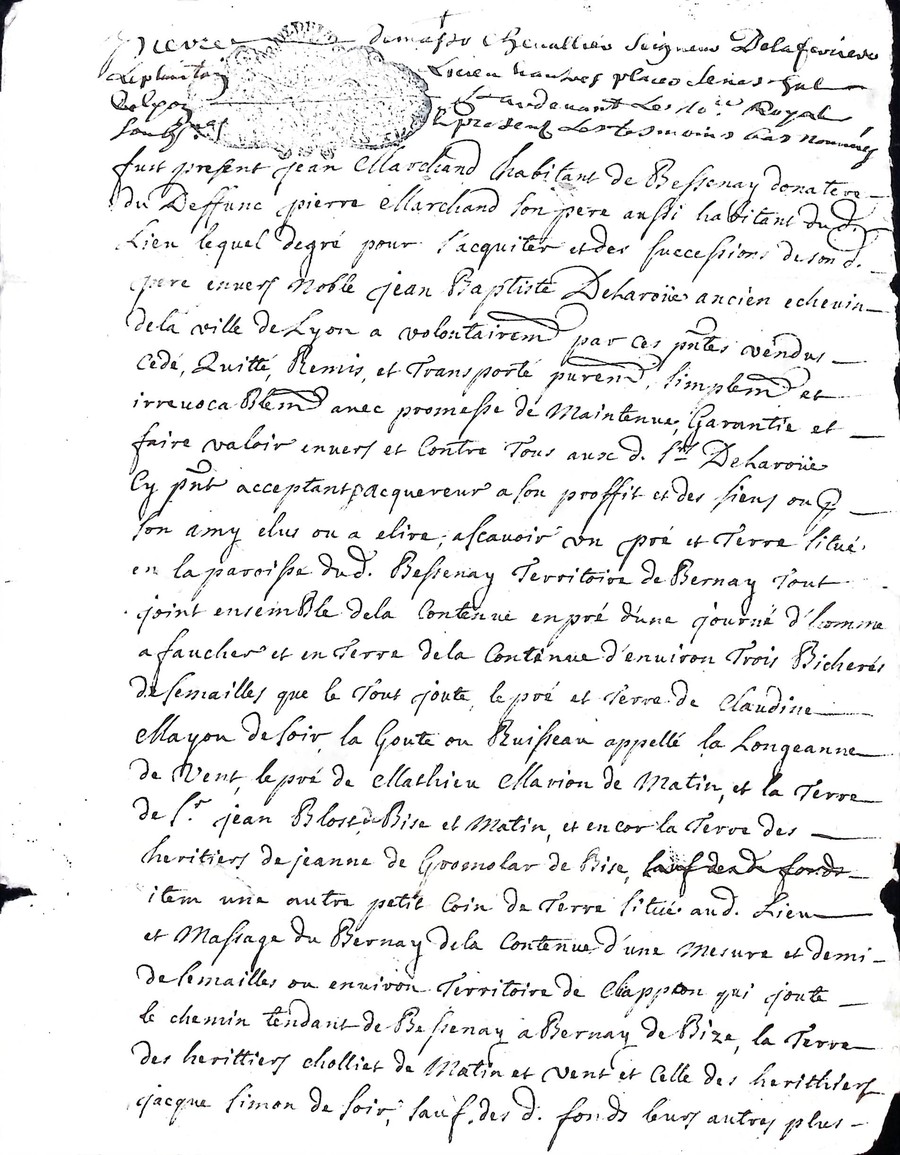 Pierre demasso Chevallier Seigneur Delaferriere
Leplantoy Lieu hautres places Seneschal
De Lyon Pardevant les no.re Royal
Soubs.nes & presents Les tesmoins bas nommés
fust present jean Marchand habitant de Bessenay donatere
du Deffunc pierre Marchand son pere aussi habitant dud.
Lieu lequel degré pour s'acquiter et des successions de son d.
pere envers Noble jean Baptiste Deharoüe ancien echevin
dela ville de Lyon a volontairem par ces pntes vendus
Cedé, Quitté, Remis, et Transporté purem, simplem et
irrevocablem avec promesse de Maintenue, Garantie et
faire valoir envers et Contre Tous aux d. Sr Deharoüe
Cy pnt acceptant acquereur a son proffit et des siens ou p
son amy elus ou a elire, ascavoir un pré et Terre situé
en la paroisse dud. Bessenay Territoire de Bernay Tout
joint ensemble dela Contenue en pré d'une journé d'homme
a faucher et en Terre dela Contenue d'environ Trois Bicherés
de semailles que le Tout joute, le pré et Terre de Claudine
Mayon de soir, la Goute ou Ruisseau appellé la Longeanne
de Vent, le pré de Mathieu Marion de Matin, et la Terre
de s.r jean Blost de Bise et Matin, et encor la Terre des
heritiers de jeanne de Grosmolar de Bise, sauf des d. fonds
item une autre petit Coin de Terre situé aud. Lieu
et Massage du Bernay dela Contenue d'une Mesure et demi
de semailles ou environ Territoire de Clappton qui joute
le chemin tendant de Bessenay a Bernay de Bize, la Terre
des herittiers cholliet de Matin et vent et Celle des herithiers
jacque simon de soir, sauf des d. fonds leurs autres plus